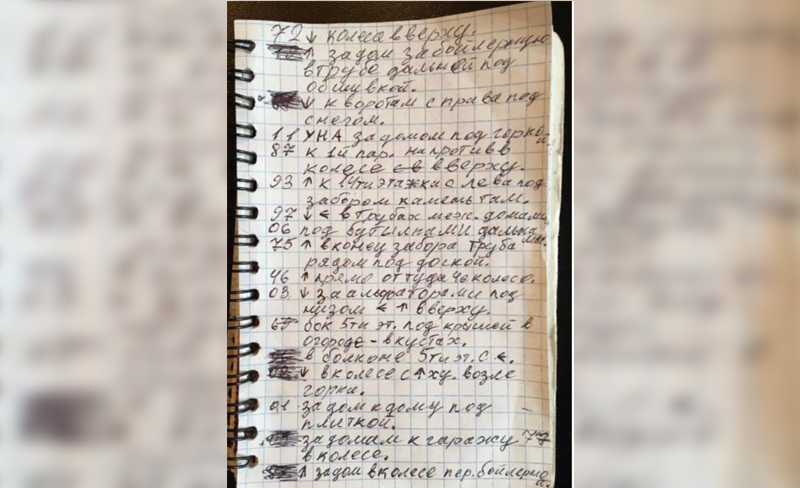 72 ↓ колеса вверху.
↑ задом за бойлерную
в трубе дальней под
обшивкой.
↓ к воротам справа под
снегом.
11 УНА за домом под горкой
87 к 1й пар. напротив в
колесе вверху.
93 ↑ к 14ти этажки слева под
забором каметь там.
97 ↓ ← в трубах меж. домами.
06 под бутылнами дальна
75 ↑ в конец забора труба
рядом под доской.
46 ↑ прямо оттуда колесо.
03 ↓ за альфаторами под
низом ← ↑ вверху.
67 бок 5ти эт. под крышей в
огороде - в кустах.
в болконе 5ти эт. с ←.
↓ в колесе с ↑ху. возле
горки.
01 за дом к дому под
плиткой.
за домам к гаражу 77
в колесе.
↑ задом в колесе пер. бойлерно